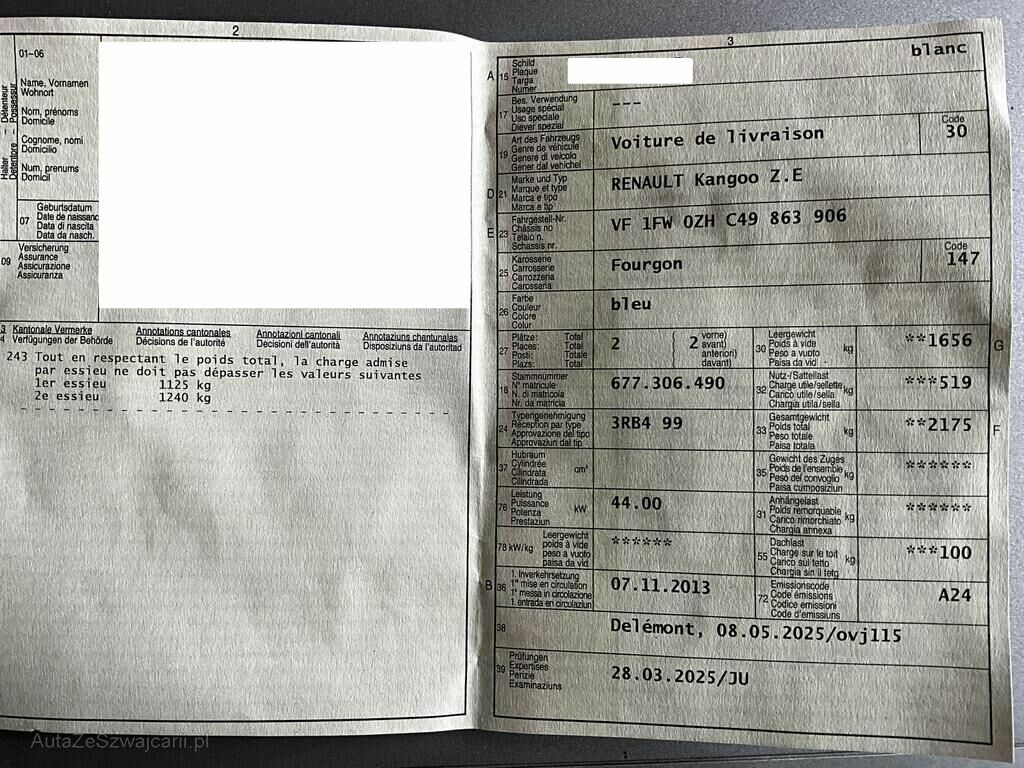 2
01-06
Halter – Détenteur
Detentore – Possessur
Name, Vornamen
Wohnort
Nom, prénoms
Domicile
Cognome, nomi
Domicilio
Num, prenums
Domicil
07
Geburtsdatum
Date de naissanc
Data di nascita
Data da nasch.
09
Versicherung
Assurance
Assicurazione
Assicuranza
3
4
Kantonale Vermerke
Verfügungen der Behörde
Annotations cantonales
Décisions de l'autorité
Annotazioni cantonali
Decisioni dell'autorità
Annotaziuns chantunalas
Disposiziuns da l'autoritad
243 Tout en respectant le poids total, la charge admise
par essieu ne doit pas dépasser les valeurs suivantes
1er essieu 1125 kg
2e essieu 1240 kg
AutaZeSzwajcarii.pl
3
blanc
A
15
Schild
Plaque
Targa
Numer
17
Bes. Verwendung
Usage spécial
Uso speciale
Diever spezial
---
19
Art des Fahrzeugs
Genre de véhicule
Genere di veicolo
Gener dal vehichel
Voiture de livraison
Code
30
D
21
Marke und Typ
Marque et type
Marca e tipo
Marca e tip
RENAULT Kangoo Z.E
E
23
Fahrgestell-Nr.
Châssis no
Telaio n.
Schassis nr.
VF 1FW 0ZH C49 863 906
25
Karosserie
Carrosserie
Carrozzeria
Carossaria
Fourgon
Code
147
26
Farbe
Couleur
Colore
Colur
bleu
27
Plätze: Total
Places: Total
Posti: Totale
Plazs: Total
2
2
vorne)
avant)
anteriori)
davant)
30
Leergewicht
Poids à vide
Peso a vuoto
Paisa da vid
kg
**1656
G
18
Stammnummer
N° matricule
N. di matricola
Nr. da matricla
677.306.490
32
Nutz-/Sattellast
Charge utile/sellette
Carico utile/sella
Chargia utila/sella
kg
***519
24
Typengenehmigung
Réception par type
Approvazione del tipo
Approvaziun dal tip
3RB4 99
33
Gesamtgewicht
Poids total
Peso totale
Paisa totala
kg
**2175
F
37
Hubraum
Cylindrée
Cilindrata
Cilindrada
cm³
35
Gewicht des Zuges
Poids de l'ensemble
Peso del convoglio
Paisa cumposiziun
kg
******
76
Leistung
Puissance
Potenza
Prestaziun
kW
44.00
31
Anhängelast
Poids remorquable
Carico rimorchiato
Chargia annexa
kg
******
78 kW/kg
Leergewicht
poids à vide
peso a vuoto
paisa da vid
******
55
Dachlast
Charge sur le toit
Carico sul tetto
Chargia sin il tetg
kg
***100
B
36
1. Inverkehrsetzung
1re mise en circulation
1a messa in circolazione
1. entrada en circulaziun
07.11.2013
72
Emissionscode
Code émissions
Codice emissioni
Code d'emissiuns
A24
38
Delémont, 08.05.2025/ovj115
39
Prüfungen
Expertises
Perizie
Examinaziuns
28.03.2025/JU
1